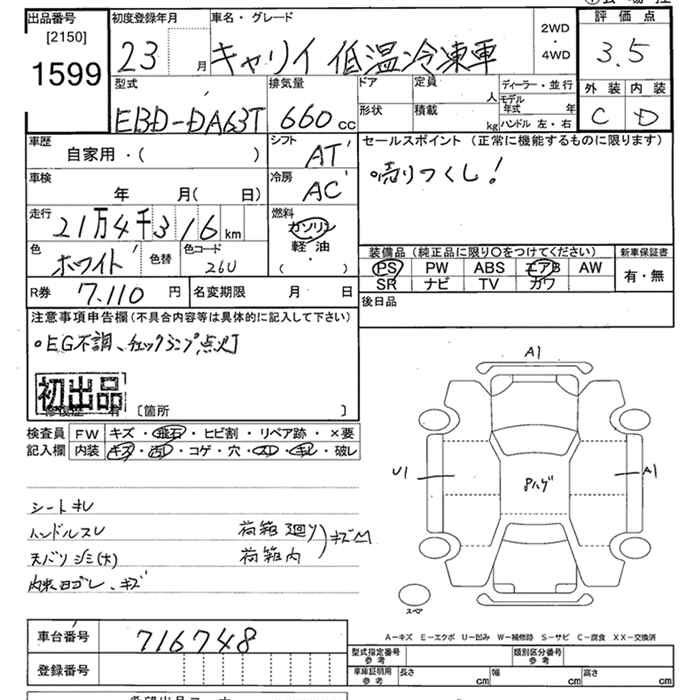 出品番号
[2150]
1599
初度登録年月
23 月
車名・グレード
キャリイ 低温冷凍車
2WD
4WD
評価点
3.5
外装 内装
C D
型式
EBD-DA63T
排気量
660 cc
ドア
形状
定員 人
積載 kg
ディーラー・並行
モデル年式 年
ハンドル 左・右
車歴
自家用・( )
シフト
AT
セールスポイント (正常に機能するものに限ります)
売りつくし!
車検
年 月( 日)
冷房
AC
走行
21万4千316 km
燃料
ガソリン
軽油
( )
色
ホワイト
色替
色コード
26U
装備品 (純正品に限り○をつけてください)
PS PW ABS エアB AW
SR ナビ TV カワ
新車保証書
有・無
R券 7.110 円
名変期限 月 日
後日品
注意事項申告欄(不具合内容等は具体的に記入して下さい)
。EG不調、チェックランプ点灯
初出品
修復歴 有 [箇所 ]
検査員
記入欄
FW キズ・飛石・ヒビ割・リペア跡・×要
内装 キズ・汚レ・コゲ・穴・スレ・キレ・破レ
シートキレ
ハンドルスレ
天バリシミ(大)
荷箱廻り
荷箱内
キズM
A1
U1
A1
スペア
A-キズ E-エクボ U-凹み W-補修跡 S-サビ C-腐食 XX-交換済
車台番号
716748
登録番号
型式指定番号
参考
類別区分番号
参考
車庫証明用
参考
長さ cm
幅 cm
高さ cm